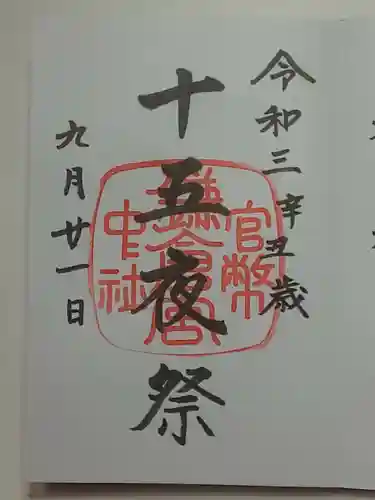 令和三辛丑歳
十五夜祭
九月廿一日
官幣
鎌倉宮
中社